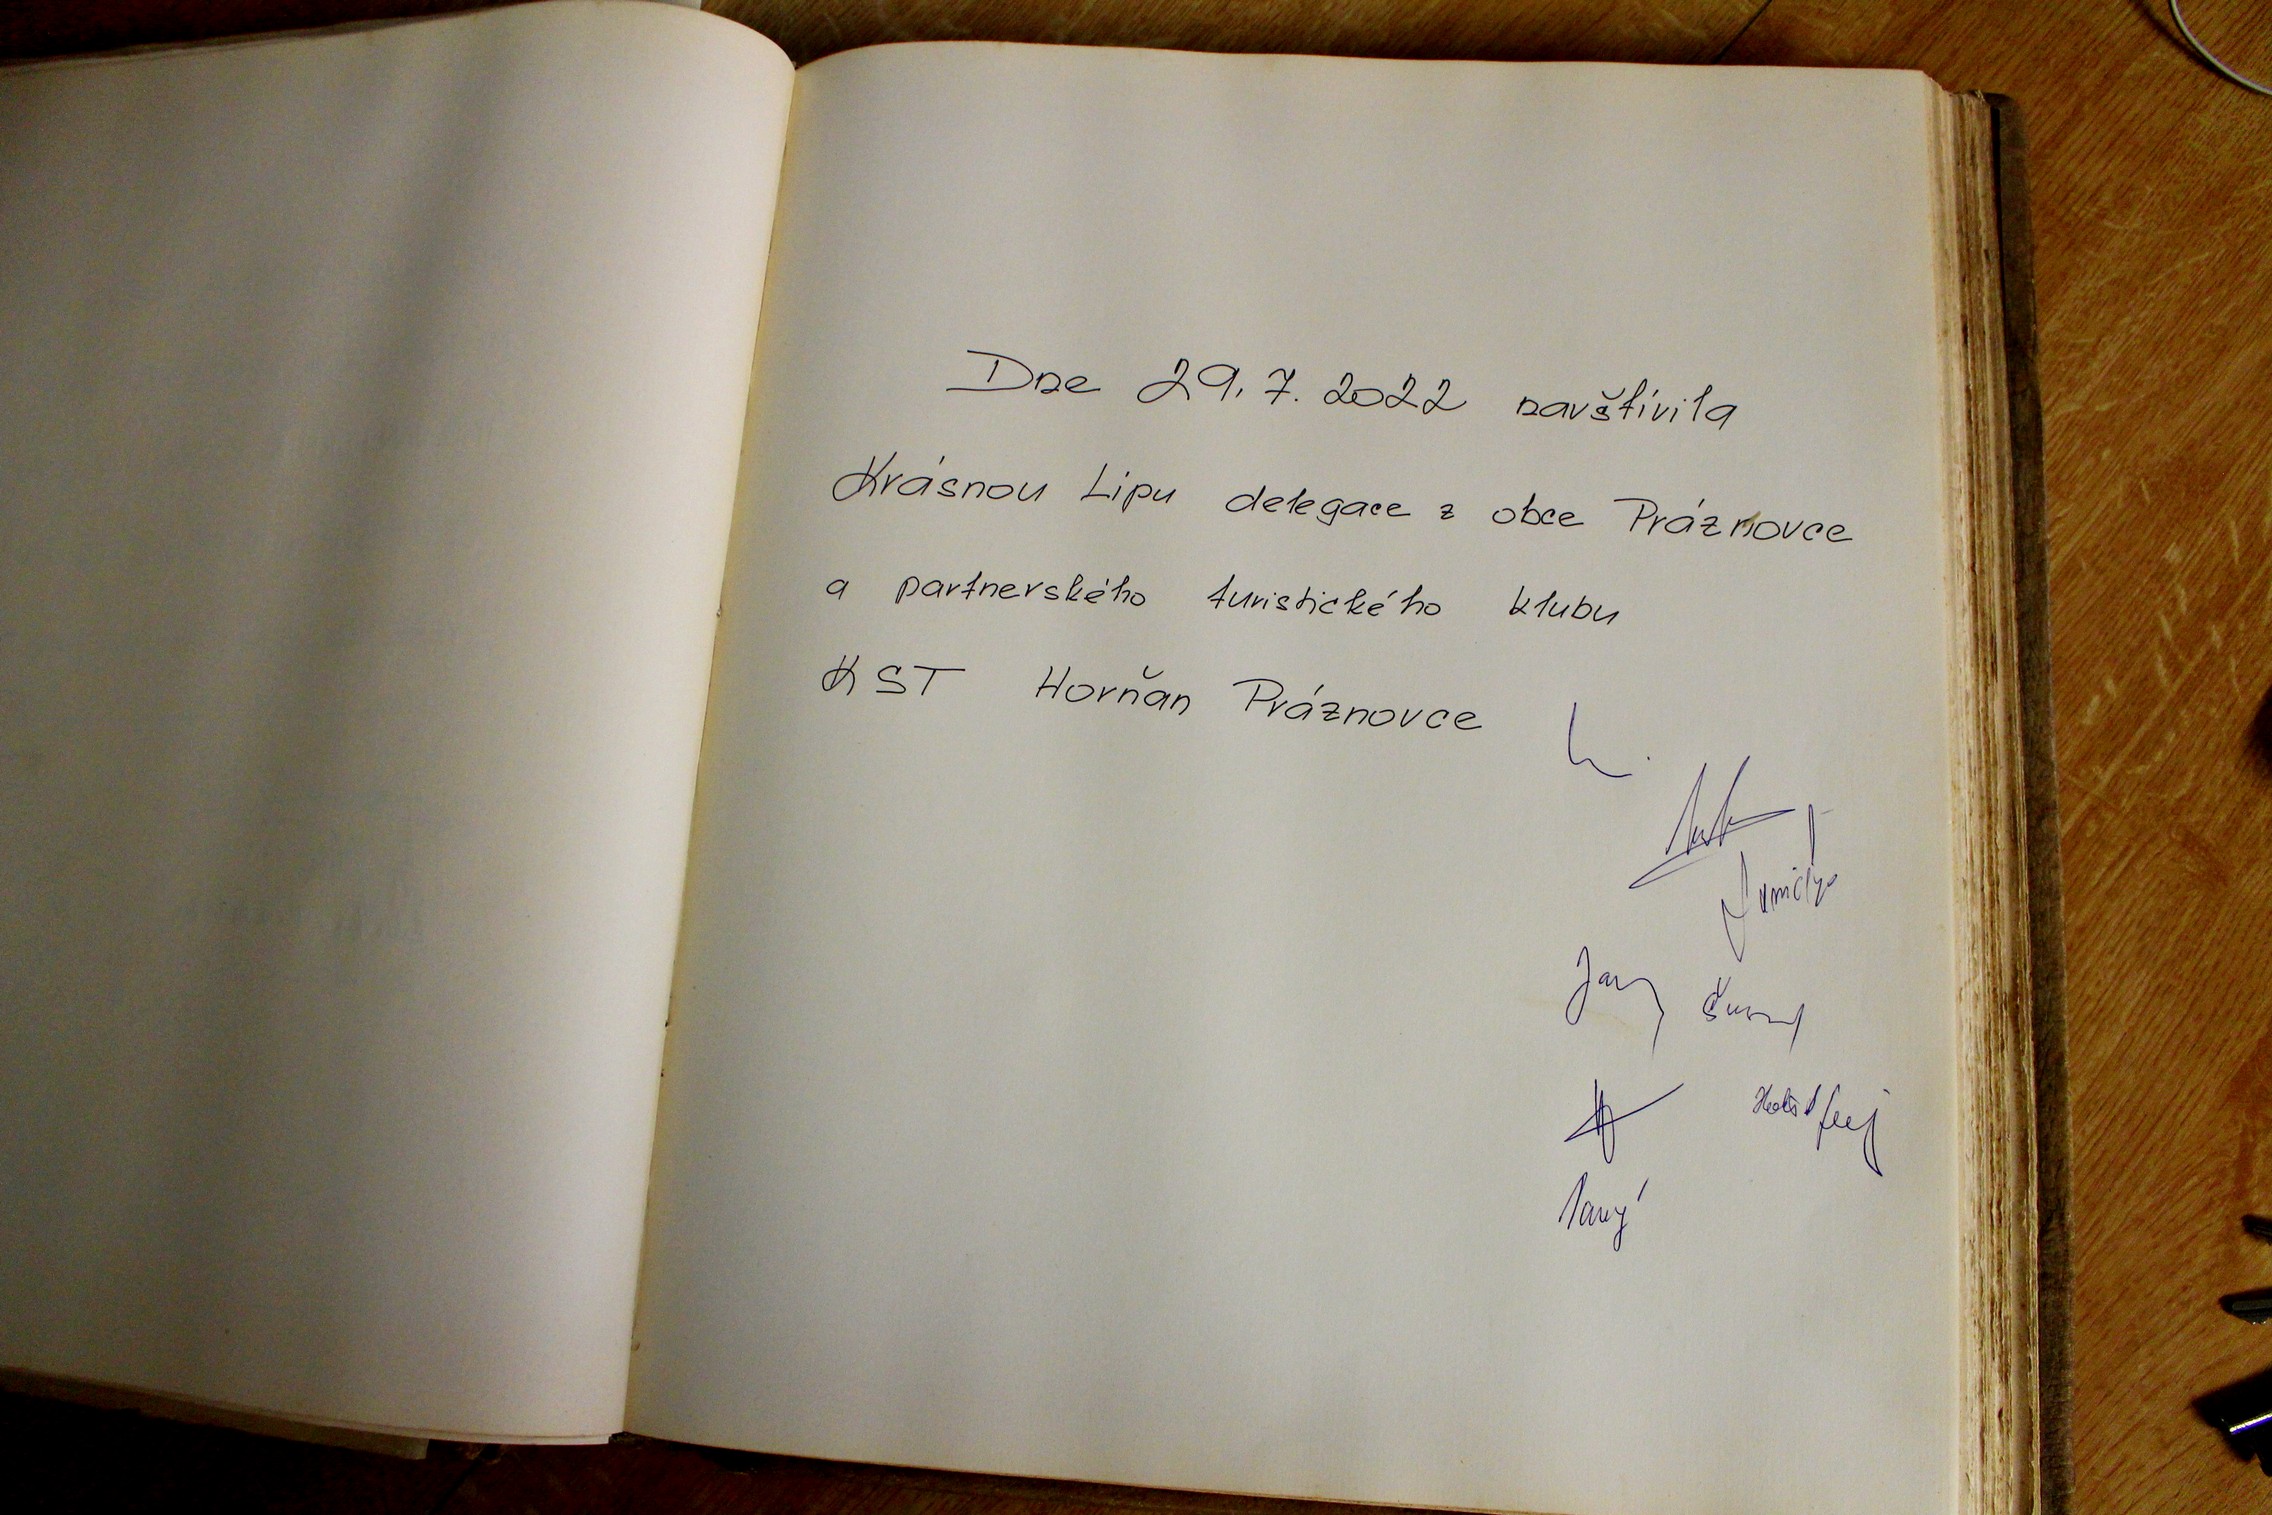 Dne 29.7.2022 navštívila
Krásnou Lípu delegace z obce Práznovce
a partnerského turistického klubu
KST Horňan Práznovce